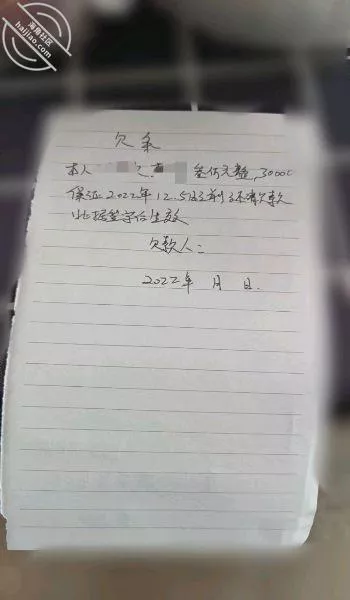 海角社区
haijiao.com
欠条
本人 欠 叁仟元整,3000
保证2022年12.5日之前还清欠款
此据签字后生效
欠款人:
2022年 月 日.